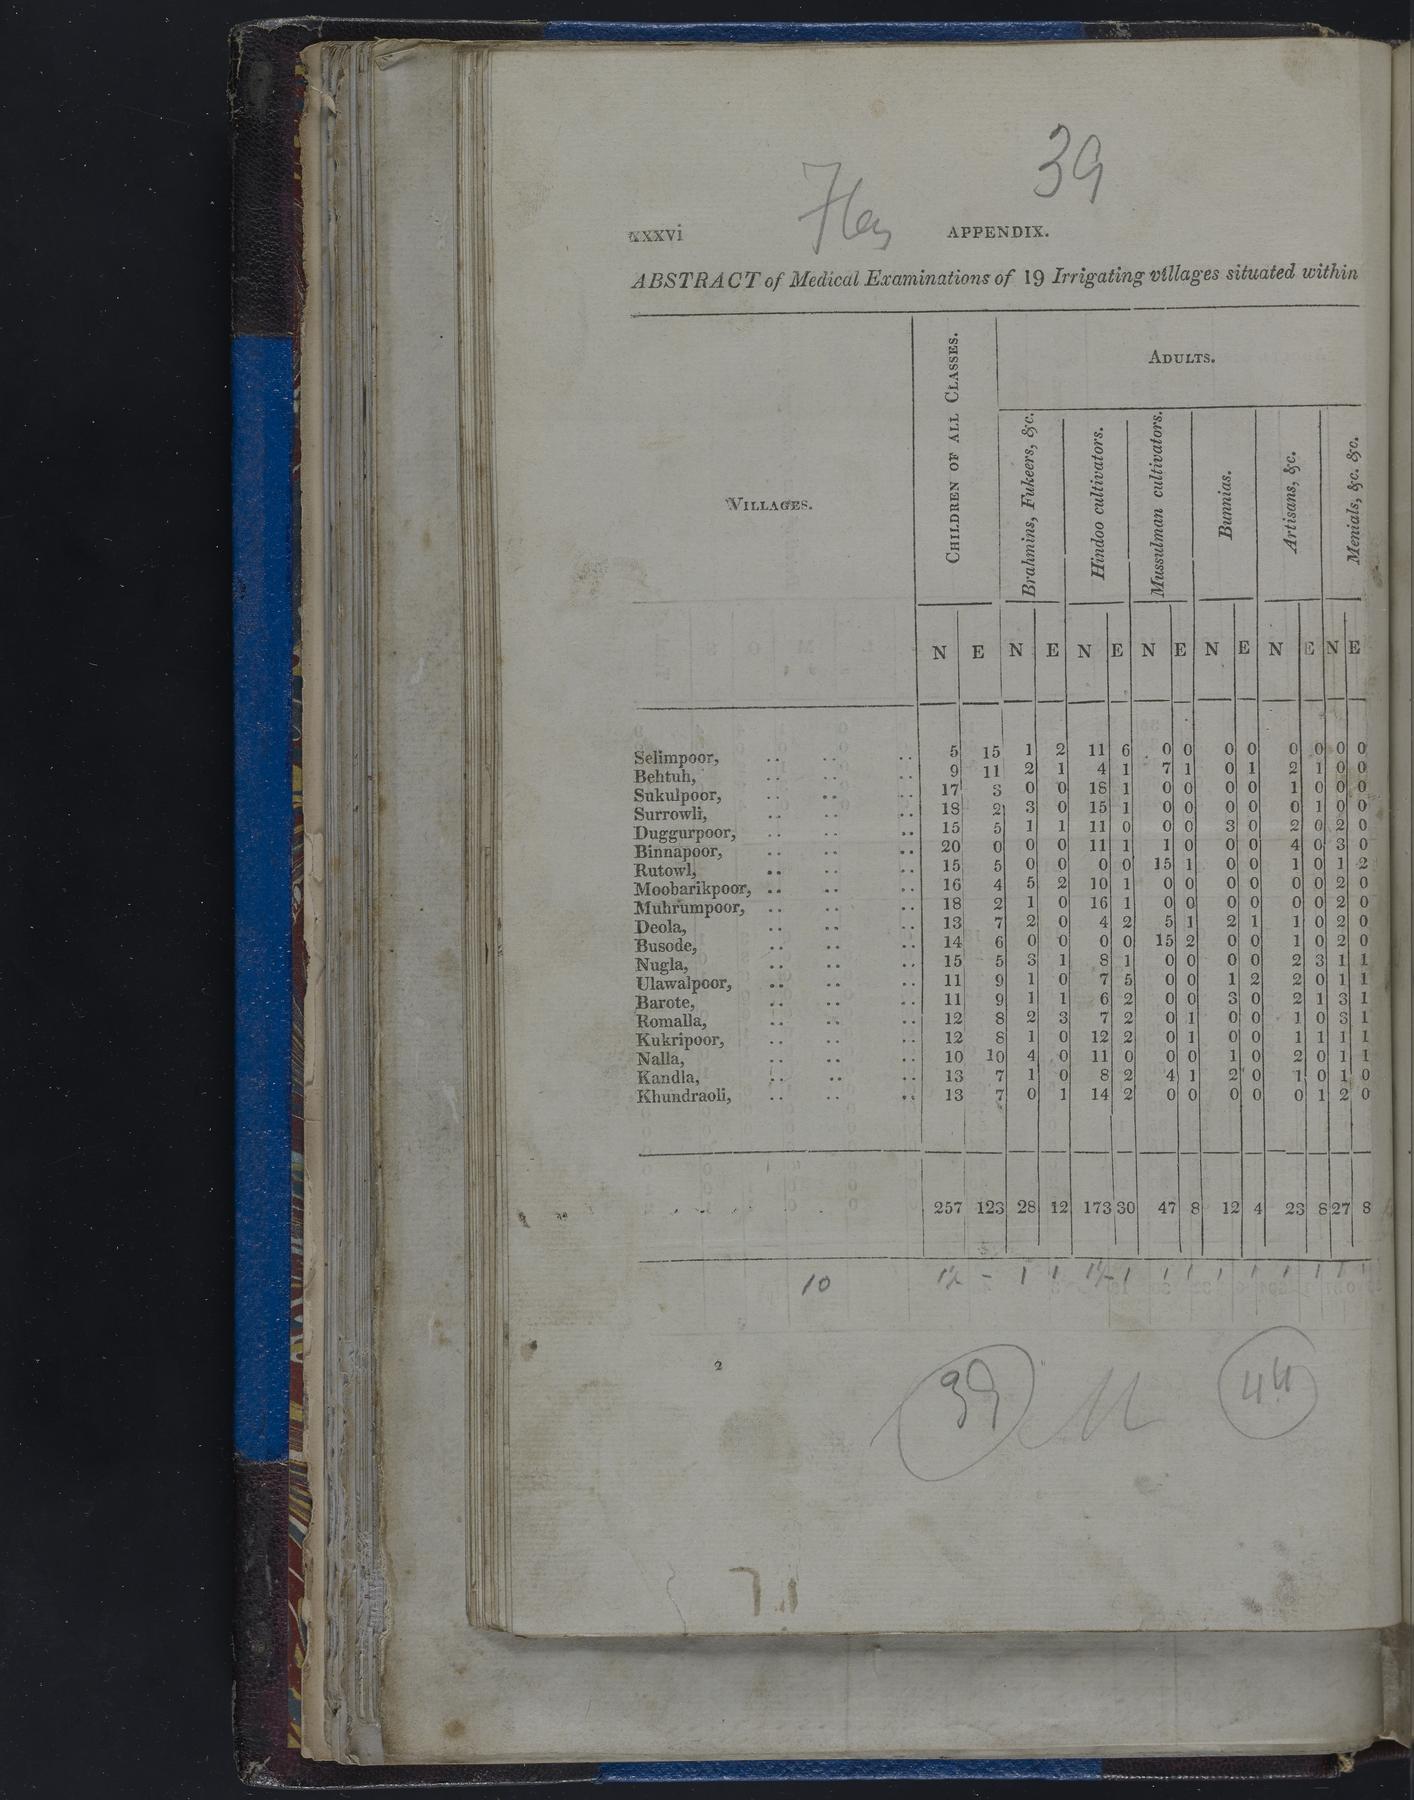 39
xxxvi APPENDIX.
ABSTRACT of Medical Examinations of 19 Irrigating villages situated within
VILLAGES. CHILDREN OF ALL CLASSES. ADULTS.
Brahmins, Fukeers, &c. Hindoo cultivators. Mussulman cultivators. Bunnias. Artisans, &c. Menials, &c. &c.
N E N E N E N E N E N E N E
Selimpoor, .. .. .. 5 15 1 2 11 6 0 0 0 0 0 0 0 0
Behtuh, .. .. .. 9 11 2 1 4 1 7 1 0 1 2 1 0 0
Sukulpoor, .. .. .. 17 3 0 0 18 1 0 0 0 0 1 0 0 0
Surrowli, .. .. .. 18 2 3 0 15 1 0 0 0 0 0 1 0 0
Duggurpoor, .. .. .. 15 5 1 1 11 0 0 0 3 0 2 0 2 0
Binnapoor, .. .. .. 20 0 0 0 11 1 1 0 0 0 4 0 3 0
Rutowl, .. .. .. 15 5 0 0 0 0 15 1 0 0 1 0 1 2
Moobarikpoor, .. .. .. 16 4 5 2 10 1 0 0 0 0 0 0 2 0
Muhrumpoor, .. .. .. 18 2 1 0 16 1 0 0 0 0 0 0 2 0
Deola, .. .. .. 13 7 2 0 4 2 5 1 2 1 1 0 2 0
Busode, .. .. .. 14 6 0 0 0 0 15 2 0 0 1 0 2 0
Nugla, .. .. .. 15 5 3 1 8 1 0 0 0 0 2 3 1 1
Ulawalpoor, .. .. .. 11 9 1 0 7 5 0 0 1 2 2 0 1 1
Barote, .. .. .. 11 9 1 1 6 2 0 0 3 0 2 1 3 1
Romalla, .. .. .. 12 8 2 3 7 2 0 1 0 0 1 0 3 1
Kukripoor, .. .. .. 12 8 1 0 12 2 0 1 0 0 1 1 1 1
Nalla, .. .. .. 10 10 4 0 11 0 0 0 1 0 2 0 1 1
Kandla, .. .. .. 13 7 1 0 8 2 4 1 2 0 1 0 1 0
Khundraoli, .. .. .. 13 7 0 1 14 2 0 0 0 0 0 1 2 0
257 123 28 12 173 30 47 8 12 4 23 8 27 8
10
2
39 44